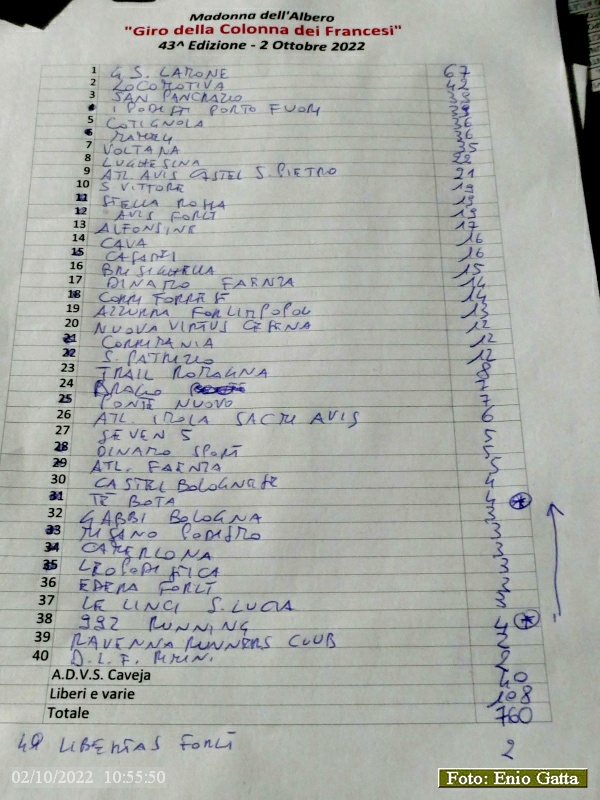 Madonna dell'Albero
"Giro della Colonna dei Francesi"
43^ Edizione - 2 Ottobre 2022
1 G.S. LAMONE 67
2 LOCOMOTIVA 42
3 SAN PANCRAZIO 39
4 I PODISTI PORTO FUORI 39
5 COTIGNOLA 36
6 36
7 VOLTANA 35
8 LUGHESINA 22
9 ATL. AVIS CASTEL S. PIETRO 21
10 S VITTORE 19
11 STELLA ROSSA 19
12 AVIS FORLI 19
13 ALFONSINE 17
14 CAVA 16
15 CASADEI 16
16 BRISIGHELLA 15
17 DINAMO FAENZA 14
18 CORRI FORRESE 14
19 AZZURRA FORLIMPOPOLI 13
20 NUOVA VIRTUS CESENA 12
21 CORRITANIA 12
22 S. PATRIZIO 12
23 TRAIL ROMAGNA 8
24 DRAGO 7
25 PONTE NUOVO 7
26 ATL. IMOLA SACMI AVIS 6
27 SEVEN 5
28 DINAMO SPORT 5
29 ATL. FAENZA 5
30 CASTEL BOLOGNESE 4
31 TE BOTA 4 *
32 GABBI BOLOGNA 3
33 MISANO PODISMO 3
34 CAMERLONA 3
35 LEOPODISTICA 3
36 EDERA FORLI 3
37 LE LINCI S. LUCIA 3
38 992 RUNNING 4 *
39 RAVENNA RUNNERS CLUB 2
40 D.L.F. RIMINI 2
A.D.V.S. Caveja 40
Liberi e varie 108
Totale 760
LIBERTAS FORLI 2
02/10/2022 10:55:50
Foto: Enio Gatta